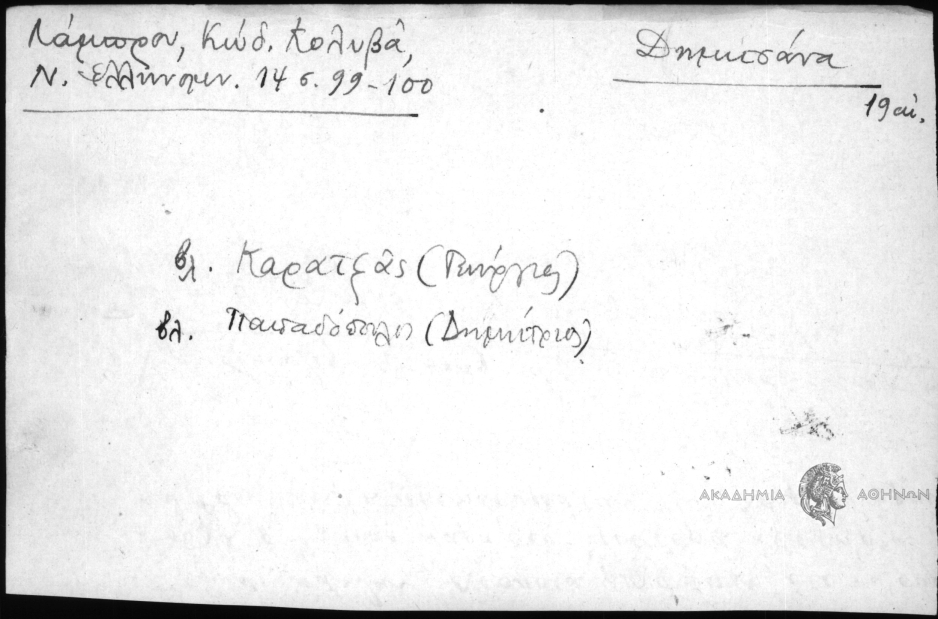 Λάμπρου, Κώδ. Κολυβᾶ,
Ν. Ἑλληνομν. 14 σ. 99-100
Δημητσάνα
19 αἰ.
βλ. Καρατζᾶς (Γεώργιος)
βλ. Παπαδόπουλος (Δημήτριος)
ΑΚΑΔΗΜΙΑ ΑΘΗΝΩΝ